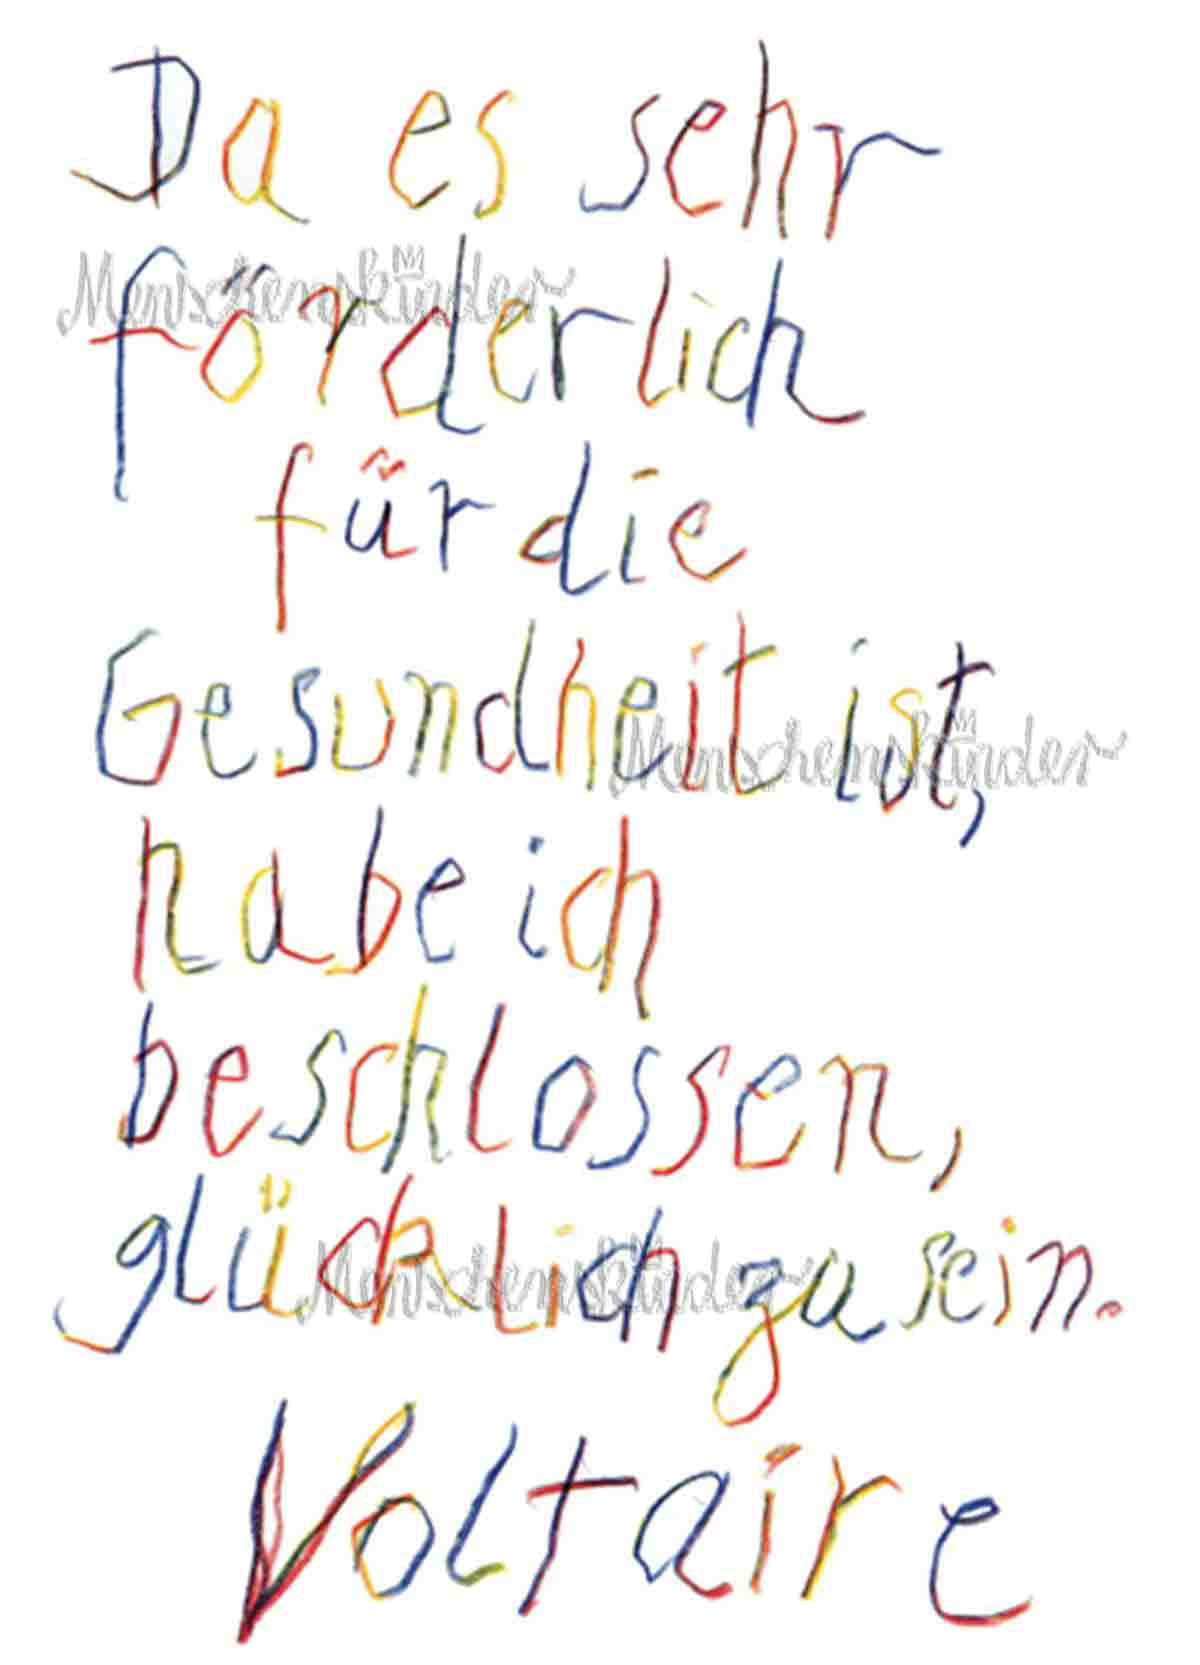 Da es sehr
Menschenskinder
förderlich
für die
Gesundheit ist,
Menschenskinder
habe ich
beschlossen,
glücklich zu sein.
Menschenskinder
Voltaire